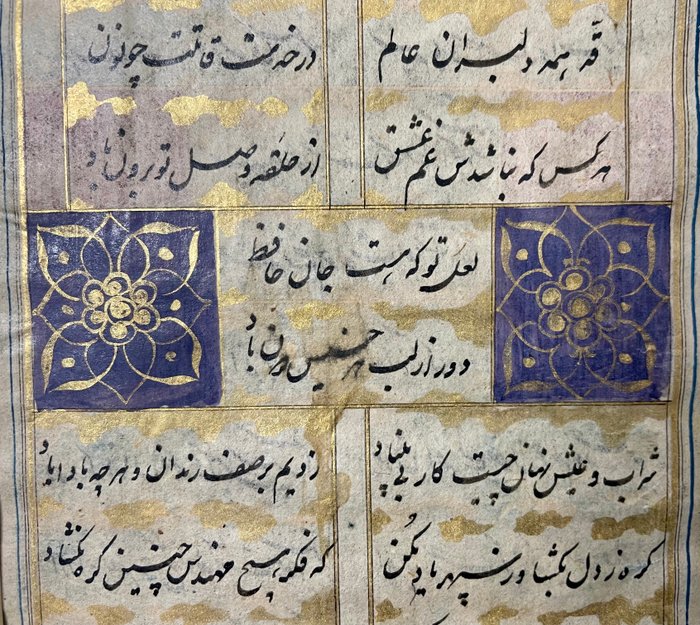 قد همه دلبران عالم در خدمت قامتت چو نون
هر کس که نباشدش غم عشق از حلقه وصل تو برون باد
لعل تو که هست جان حافظ
دور از لب هر خسیس دون باد
شراب و عیش نهان چیست کار بی بنیاد زدیم بر صف رندان و هر چه بادا باد
کره ز دل بکشا وز سپهر یاد مکن که فکر هیچ مهندس چنین کره نکشاد